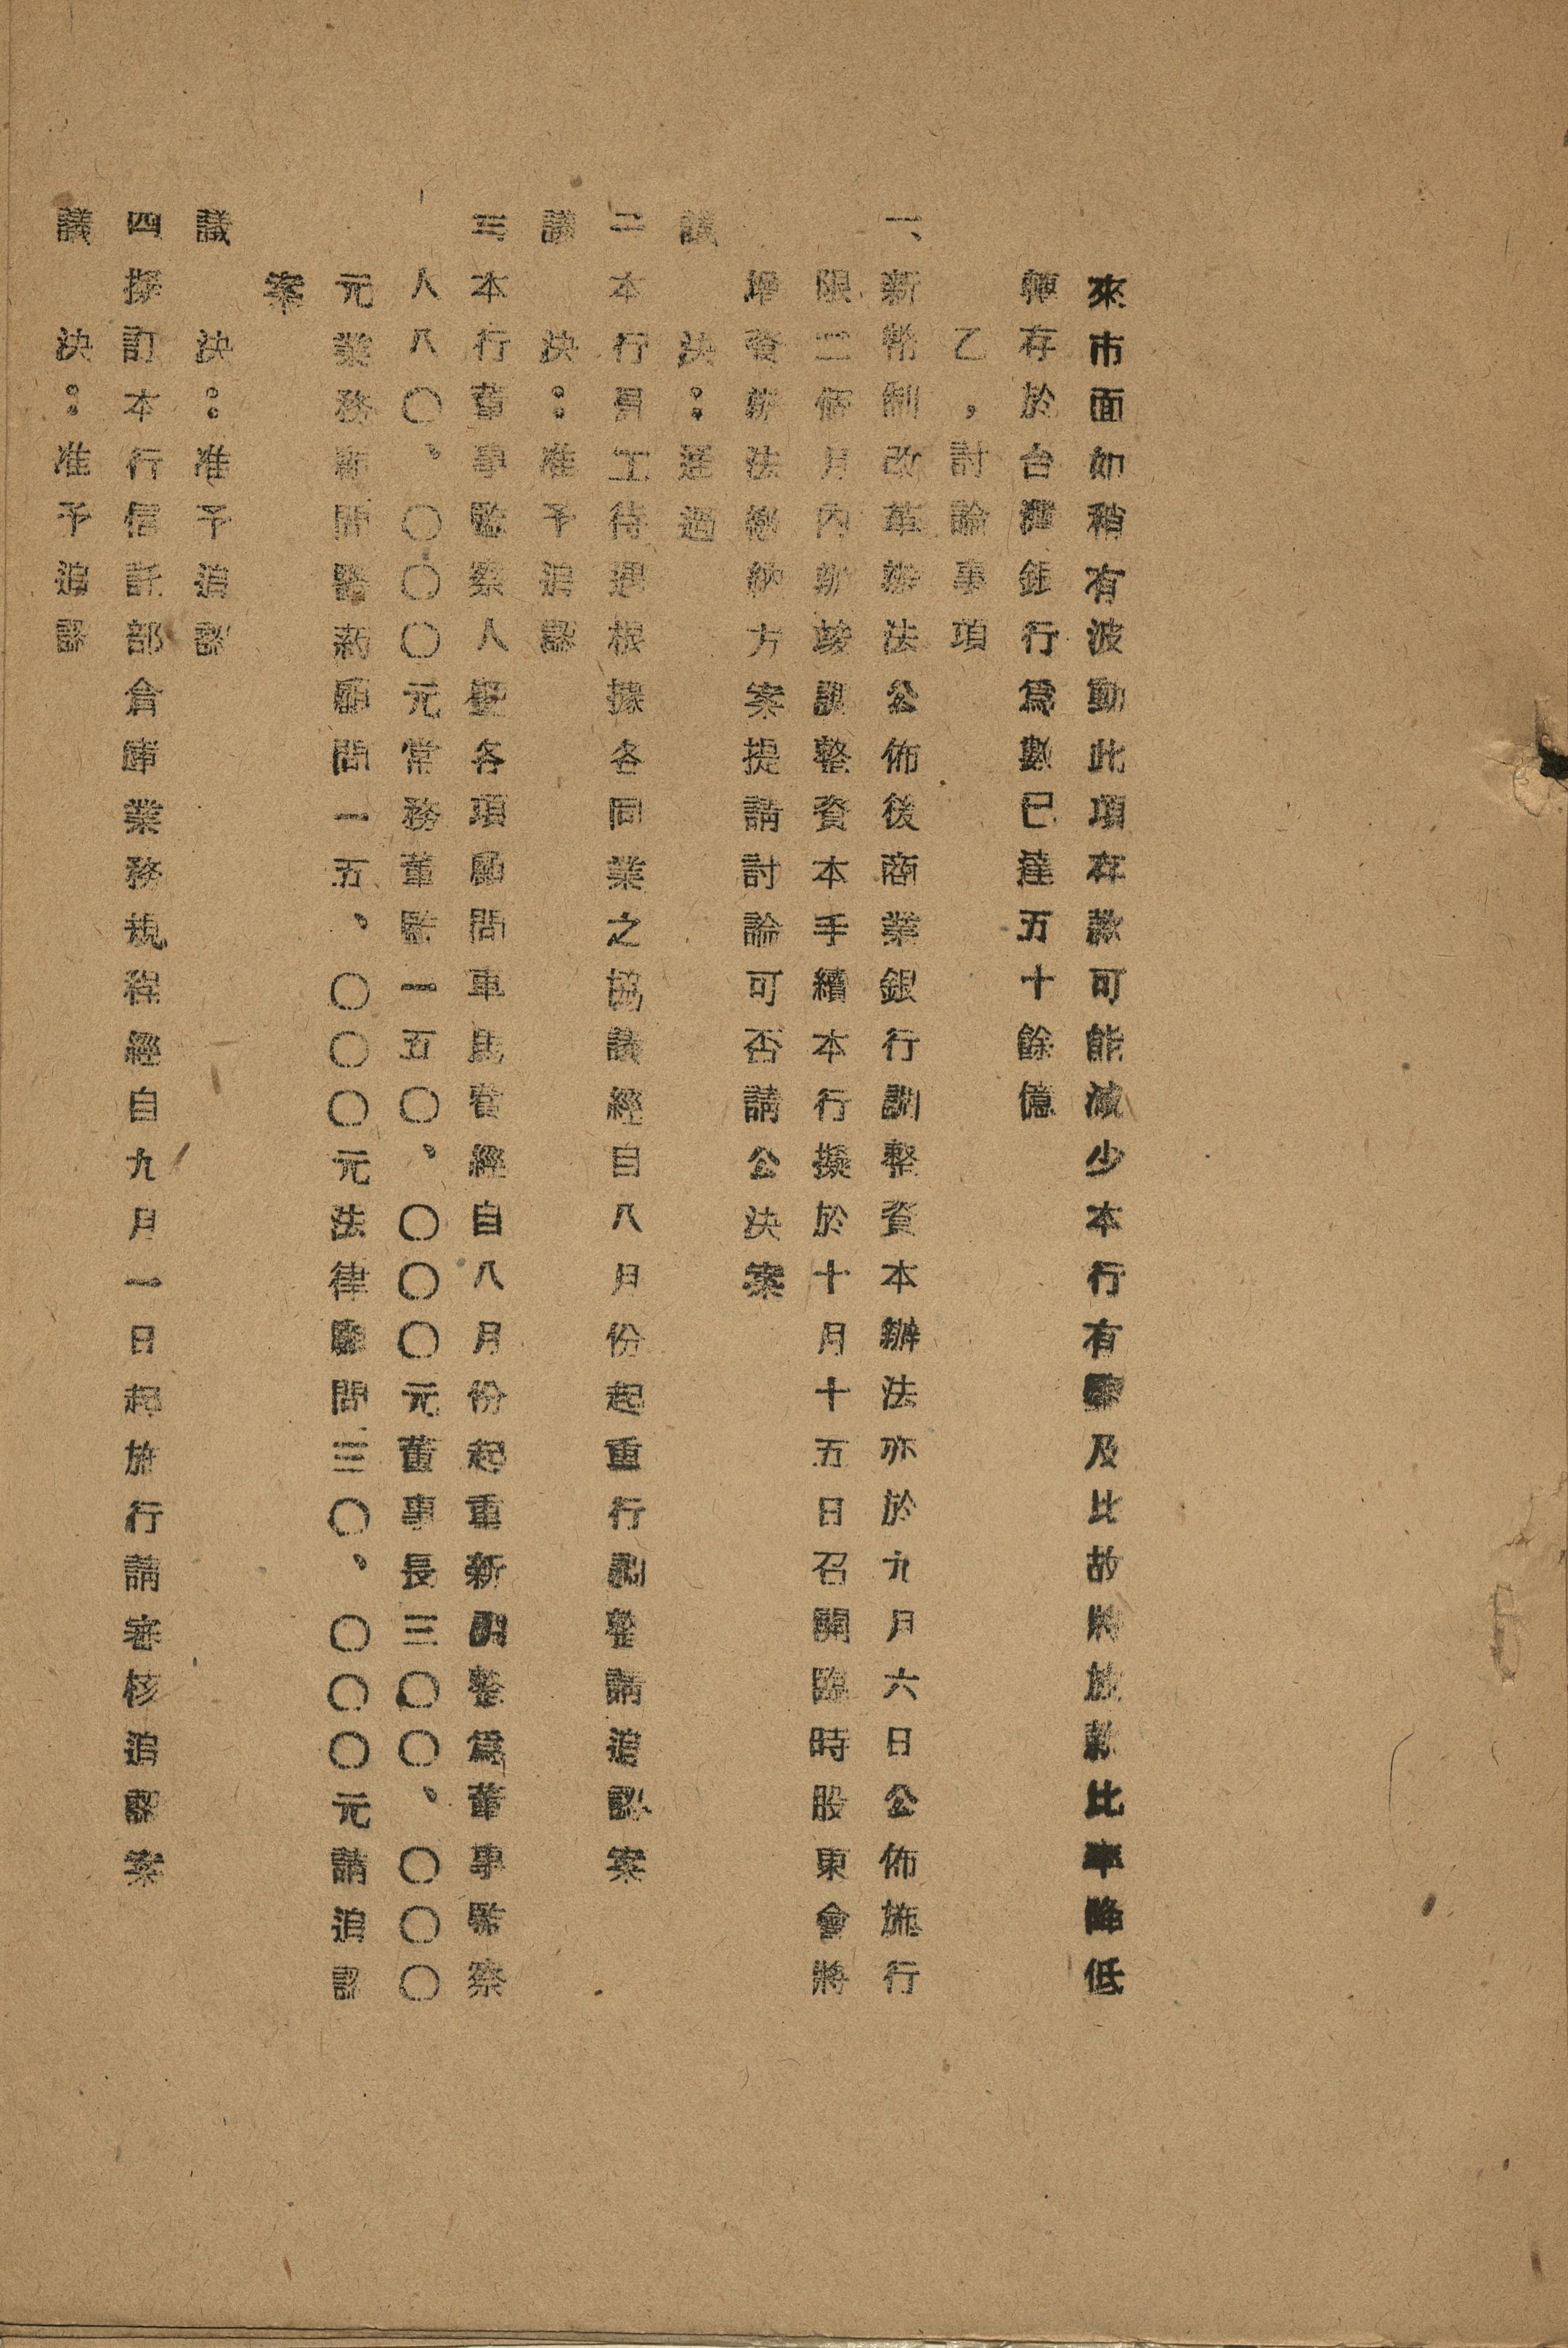 來市面如稍有波動此項存款可能減少本行有鑒及比故將放款比率降低
轉存於台灣銀行爲數已達五十餘億
乙,討論事項
一、新幣制改革辦法公佈後商業銀行調整資本辦法亦於九月六日公佈施行
限二個月內辦竣調整資本手續本行擬於十月十五日召開臨時股東會將
增資辦法繳納方案提請討論可否請公決案
議決：通過
二本行員工待遇根據各同業之協議經自八月份起重行調整請追認案
議決：准予追認
三本行董事監察人暨各項顧問車馬費經自八月份起重新調整爲董事監察
人八〇、〇〇〇元常務董監一五〇、〇〇〇元董事長三〇〇、〇〇〇
元業務顧問醫藥顧問一五、〇〇〇元法律顧問三〇、〇〇〇元請追認
案
議決：准予追認
四擬訂本行信託部倉庫業務規程經自九月一日起施行請審核追認案
議決：准予追認